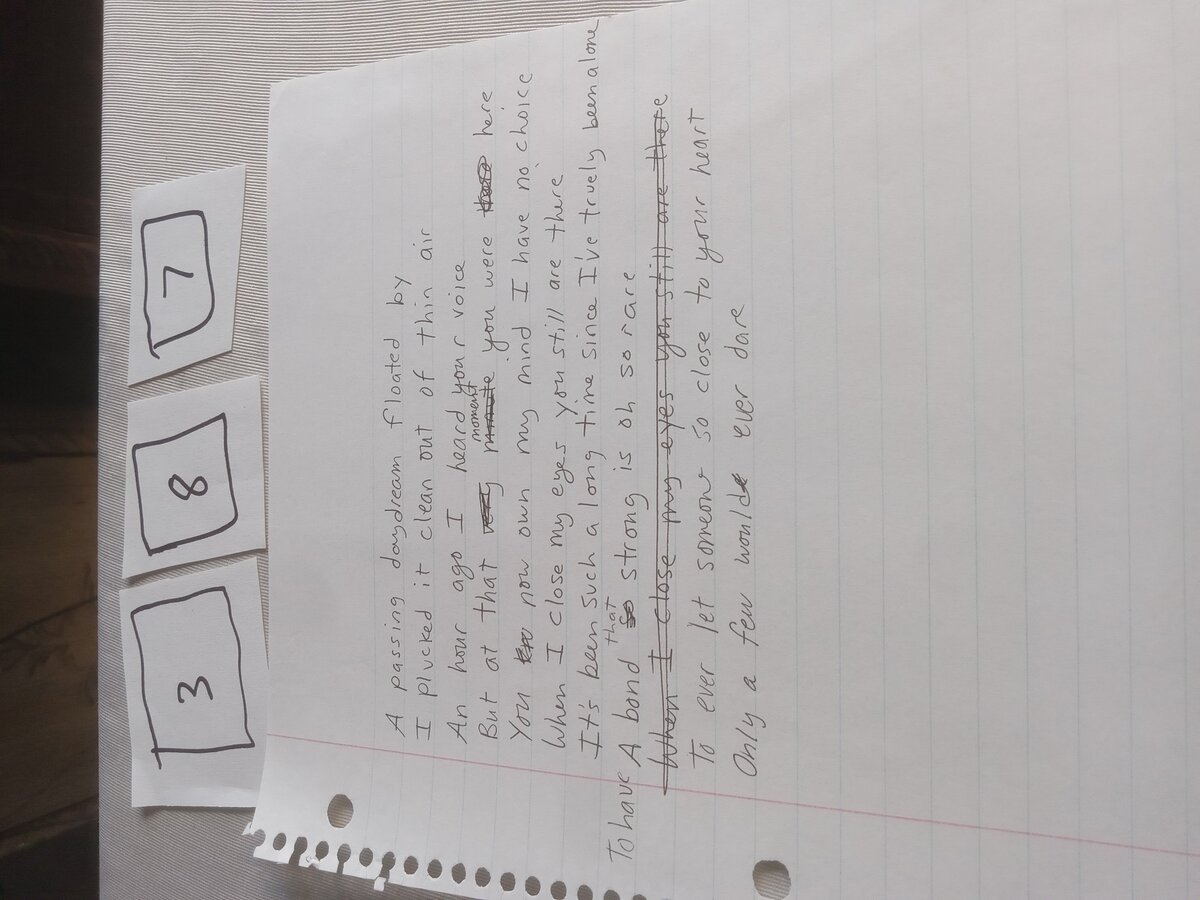 3 8 7
A passing daydream floated by
I plucked it clean out of thin air
An hour ago I heard your voice
But at that very minute moment you were here
You now own my mind I have no choice
When I close my eyes you still are there
It's been such a long time since I've truely been alone
To have A bond so that strong is oh so rare
When I close my eyes you still are there
To ever let someone so close to your heart
Only a few would ever dare